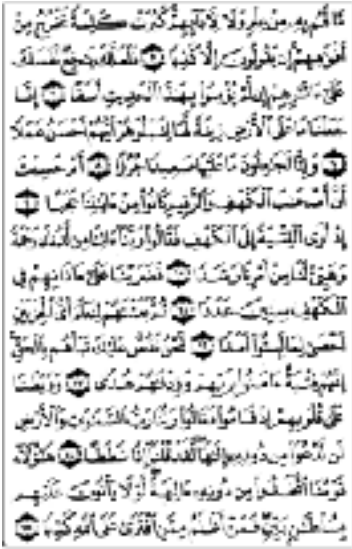 مَّا لَهُم بِهِۦ مِنْ عِلْمٍ وَلَا لِآبَآئِهِمْ كَبُرَتْ كَلِمَةً تَخْرُجُ مِنْ
أَفْوَٰهِهِمْ إِن يَقُولُونَ إِلَّا كَذِبًا ۝ فَلَعَلَّكَ بَٰخِعٌ نَّفْسَكَ
عَلَىٰٓ ءَاثَٰرِهِمْ إِن لَّمْ يُؤْمِنُوا۟ بِهَٰذَا ٱلْحَدِيثِ أَسَفًا ۝ إِنَّا
جَعَلْنَا مَا عَلَى ٱلْأَرْضِ زِينَةً لَّهَا لِنَبْلُوَهُمْ أَيُّهُمْ أَحْسَنُ عَمَلًا
۝ وَإِنَّا لَجَٰعِلُونَ مَا عَلَيْهَا صَعِيدًا جُرُزًا ۝ أَمْ حَسِبْتَ
أَنَّ أَصْحَٰبَ ٱلْكَهْفِ وَٱلرَّقِيمِ كَانُوا۟ مِنْ ءَايَٰتِنَا عَجَبًا ۝
إِذْ أَوَى ٱلْفِتْيَةُ إِلَى ٱلْكَهْفِ فَقَالُوا۟ رَبَّنَآ ءَاتِنَا مِن لَّدُنكَ رَحْمَةً
وَهَيِّئْ لَنَا مِنْ أَمْرِنَا رَشَدًا ۝ فَضَرَبْنَا عَلَىٰٓ ءَاذَانِهِمْ فِى
ٱلْكَهْفِ سِنِينَ عَدَدًا ۝ ثُمَّ بَعَثْنَٰهُمْ لِنَعْلَمَ أَىُّ ٱلْحِزْبَيْنِ
أَحْصَىٰ لِمَا لَبِثُوٓا۟ أَمَدًا ۝ نَّحْنُ نَقُصُّ عَلَيْكَ نَبَأَهُم بِٱلْحَقِّ
إِنَّهُمْ فِتْيَةٌ ءَامَنُوا۟ بِرَبِّهِمْ وَزِدْنَٰهُمْ هُدًى ۝ وَرَبَطْنَا
عَلَىٰ قُلُوبِهِمْ إِذْ قَامُوا۟ فَقَالُوا۟ رَبُّنَا رَبُّ ٱلسَّمَٰوَٰتِ وَٱلْأَرْضِ
لَن نَّدْعُوَا۟ مِن دُونِهِۦٓ إِلَٰهًا لَّقَدْ قُلْنَآ إِذًا شَطَطًا ۝ هَٰٓؤُلَآءِ
قَوْمُنَا ٱتَّخَذُوا۟ مِن دُونِهِۦٓ ءَالِهَةً لَّوْلَا يَأْتُونَ عَلَيْهِم
بِسُلْطَٰنٍۭ بَيِّنٍ فَمَنْ أَظْلَمُ مِمَّنِ ٱفْتَرَىٰ عَلَى ٱللَّهِ كَذِبًا ۝